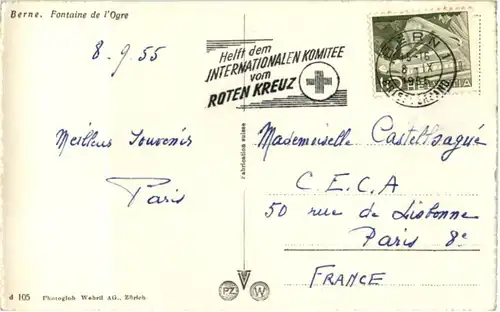 Berne. Fontaine de l'Ogre
8.9.55
Helft dem
INTERNATIONALEN KOMITEE
vom
ROTEN KREUZ
BERN 1
15-16
8 IX
Meilleurs Souvenirs
Paris
Fabrication suisse
Mademoiselle Castelbagué
C.E.C.A
50 rue de Lisbonne
Paris 8e
FRANCE
PZ W
d 105 Photoglob Wehrli AG., Zürich